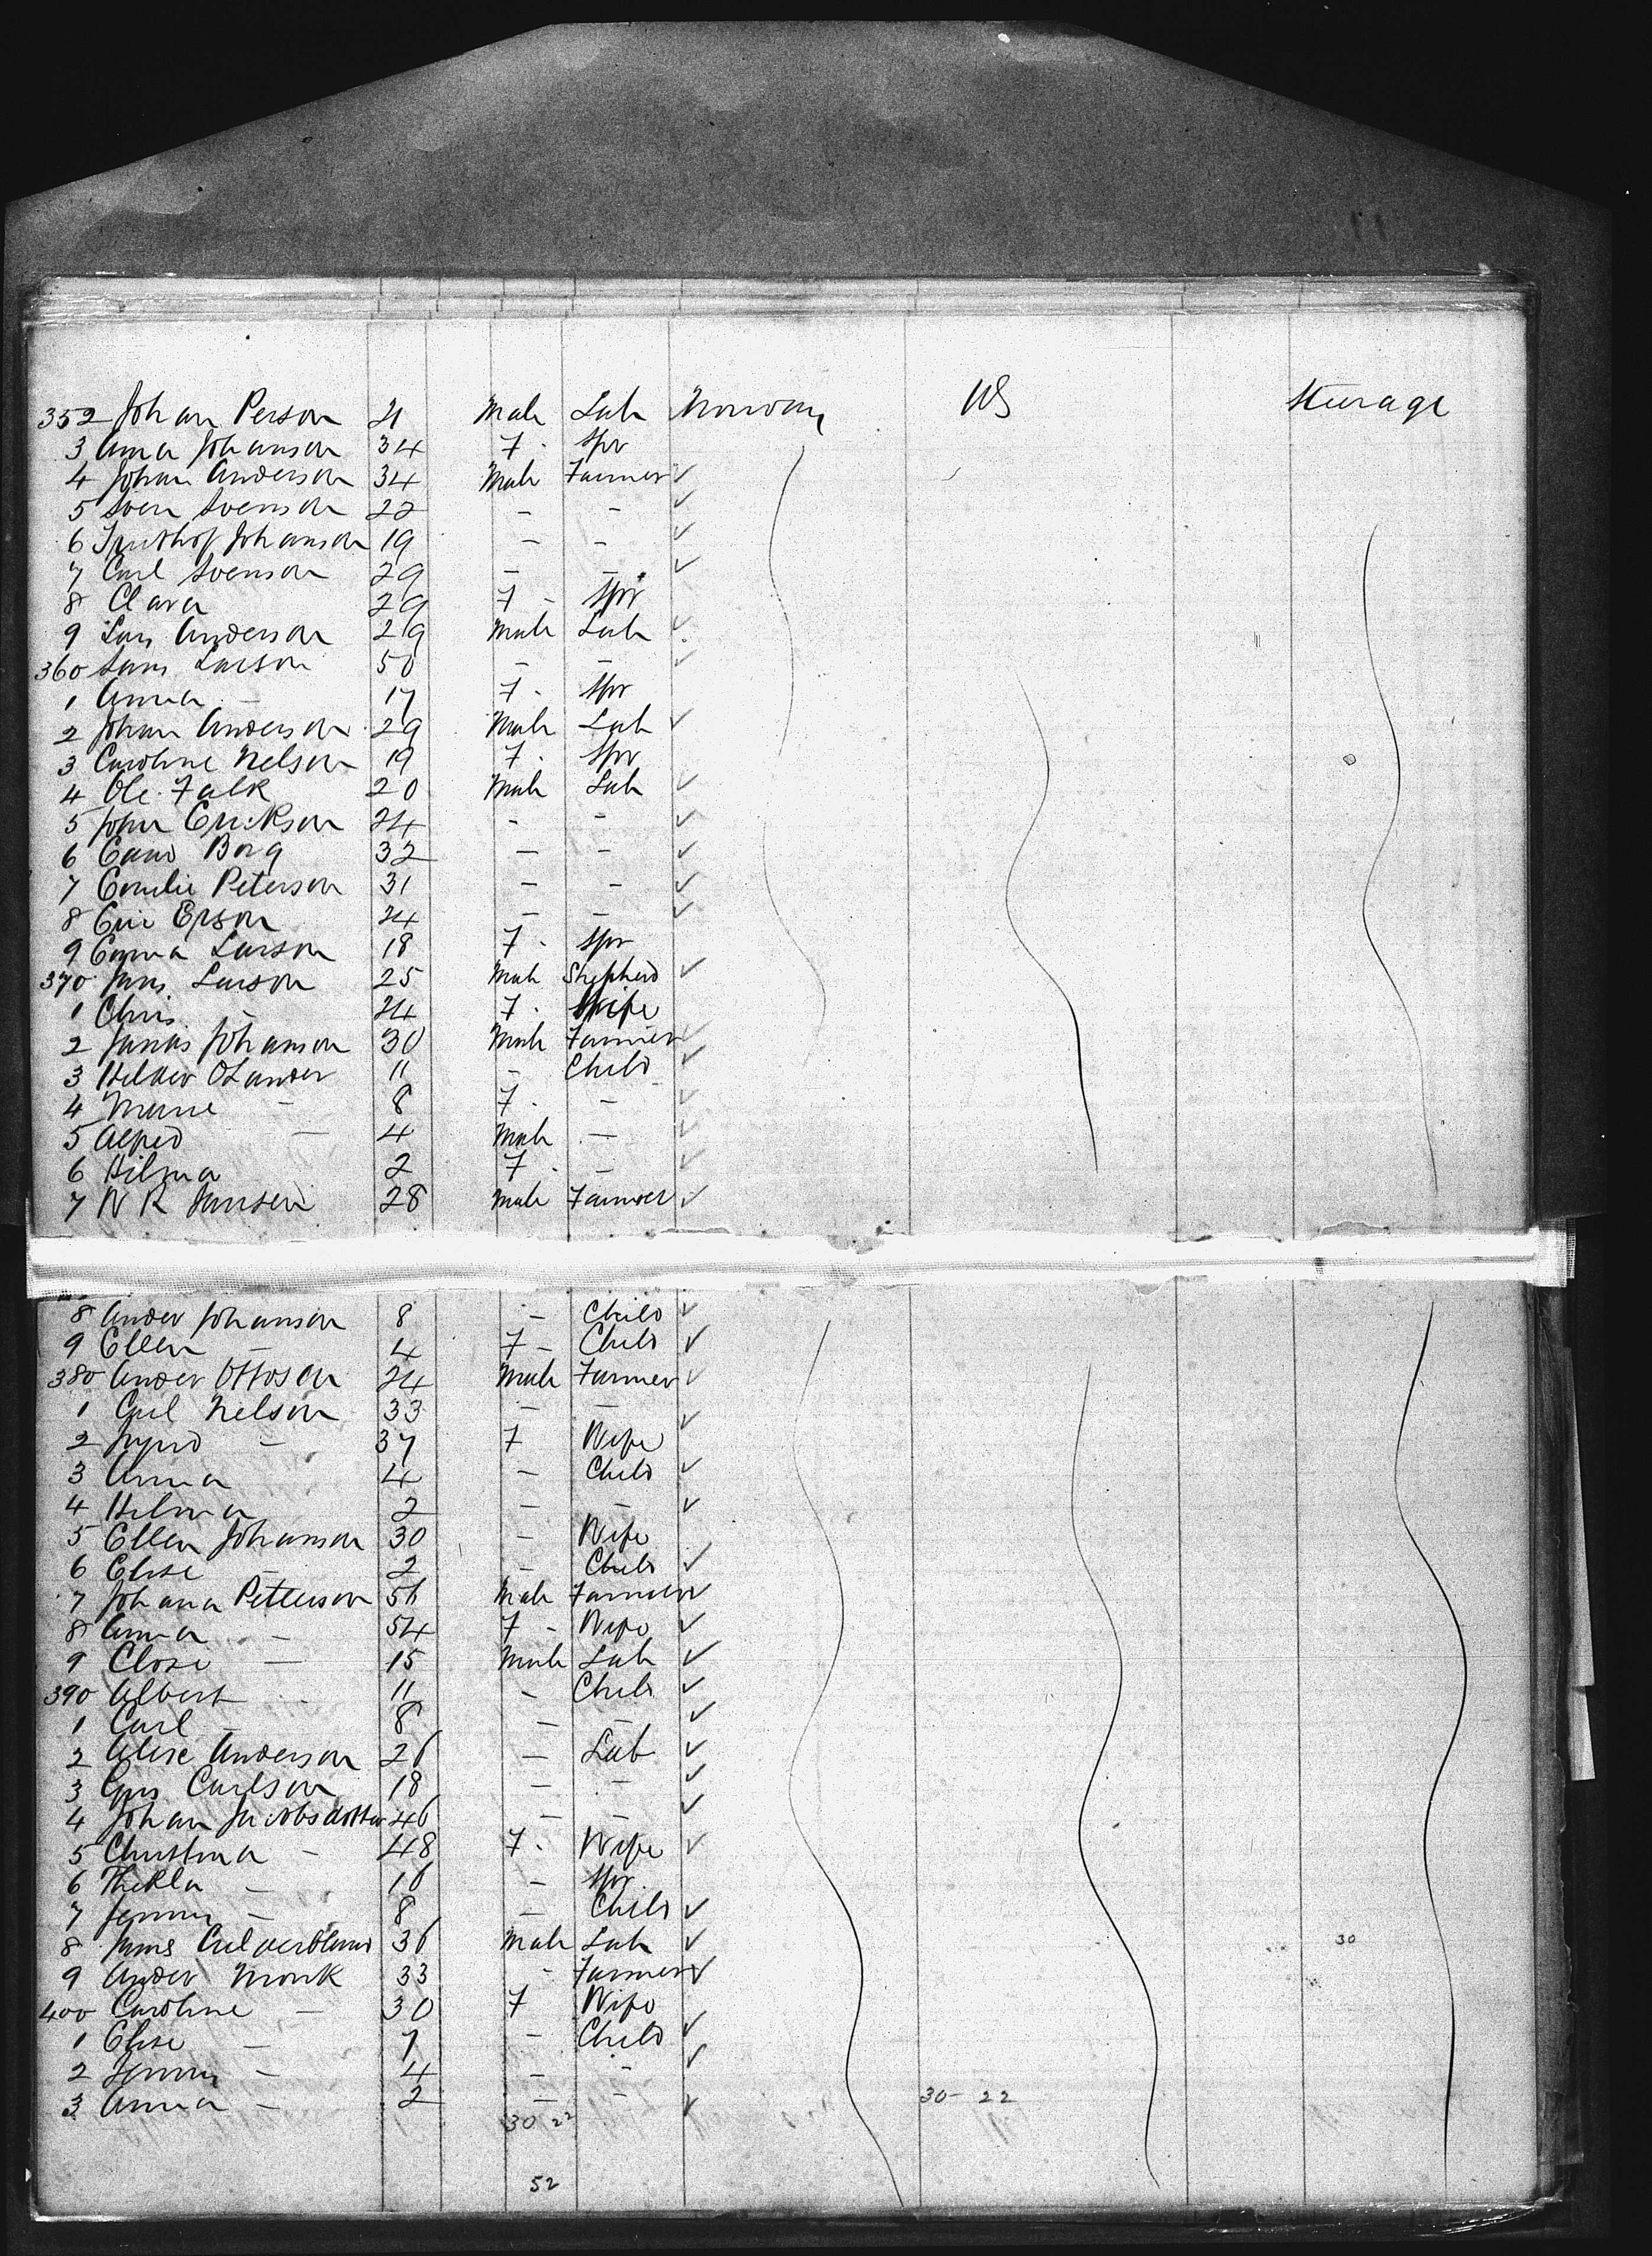 352 Johan Person 21 Male Lab Norway US Steerage
3 Anna Johanson 34 F. Spr
4 Johan Anderson 34 Male Farmer ✓
5 Sven Svenson 22 - - ✓
6 Johanson 19 - - ✓
7 Carl Svenson 29 - - ✓
8 Clara 29 F - Spr
9 Lars Anderson 29 Male Lab ✓
360 Lars Larson 50 - - ✓
1 Anna - 17 F. Spr
2 Johan Anderson 29 Male Lab ✓
3 Caroline Nelson 19 F. Spr
4 Ole Falk 20 Male Lab ✓
5 John Erickson 24 - - ✓
6 Borg 32 - - ✓
7 Emilie Peterson 31 - - ✓
8 Eric Erson 24 - - ✓
9 Emma Larson 18 F. Spr
370 Jans Larson 25 Male Shepherd ✓
1 Chris 24 F. Wife
2 Johanson 30 Male Farmer ✓
3 Olander 11 - Child ✓
4 Marie - 8 F. - ✓
5 Alfred - 4 Male - ✓
6 Hilma 2 F. - ✓
7 N R Jansen 28 Male Farmer ✓
8 Ander Johanson 8 - Child ✓
9 Ellen - 4 F - Child ✓
380 Ander Ottoson 24 Male Farmer ✓
1 Carl Nelson 33 - - ✓
2 - 37 F Wife
3 Anna 4 - Child ✓
4 Hilma 2 - - ✓
5 Ellen Johanson 30 - Wife
6 Elise - 2 - Child ✓
7 Johana Petterson 56 Male Farmer ✓
8 Anna - 54 F - Wife ✓
9 - 15 Male Lab ✓
390 Albert - 11 - Child ✓
1 Carl - 8 - - ✓
2 Anderson 26 - Lab ✓
3 Gus Carlson 18 - - ✓
4 Johan Jacobsdotter 46 - - ✓
5 Christina - 48 F. Wife ✓
6 Thekla - 16 - Spr
7 Jenny - 8 - Child ✓
8 36 Male Lab ✓ 30
9 Ander Monk 33 - Farmer ✓
400 Caroline - 30 F Wife
1 Elise - 7 - Child ✓
2 Jenny - 4 - - ✓
3 Anna - 2 - - ✓ 30- 22
30 22
52